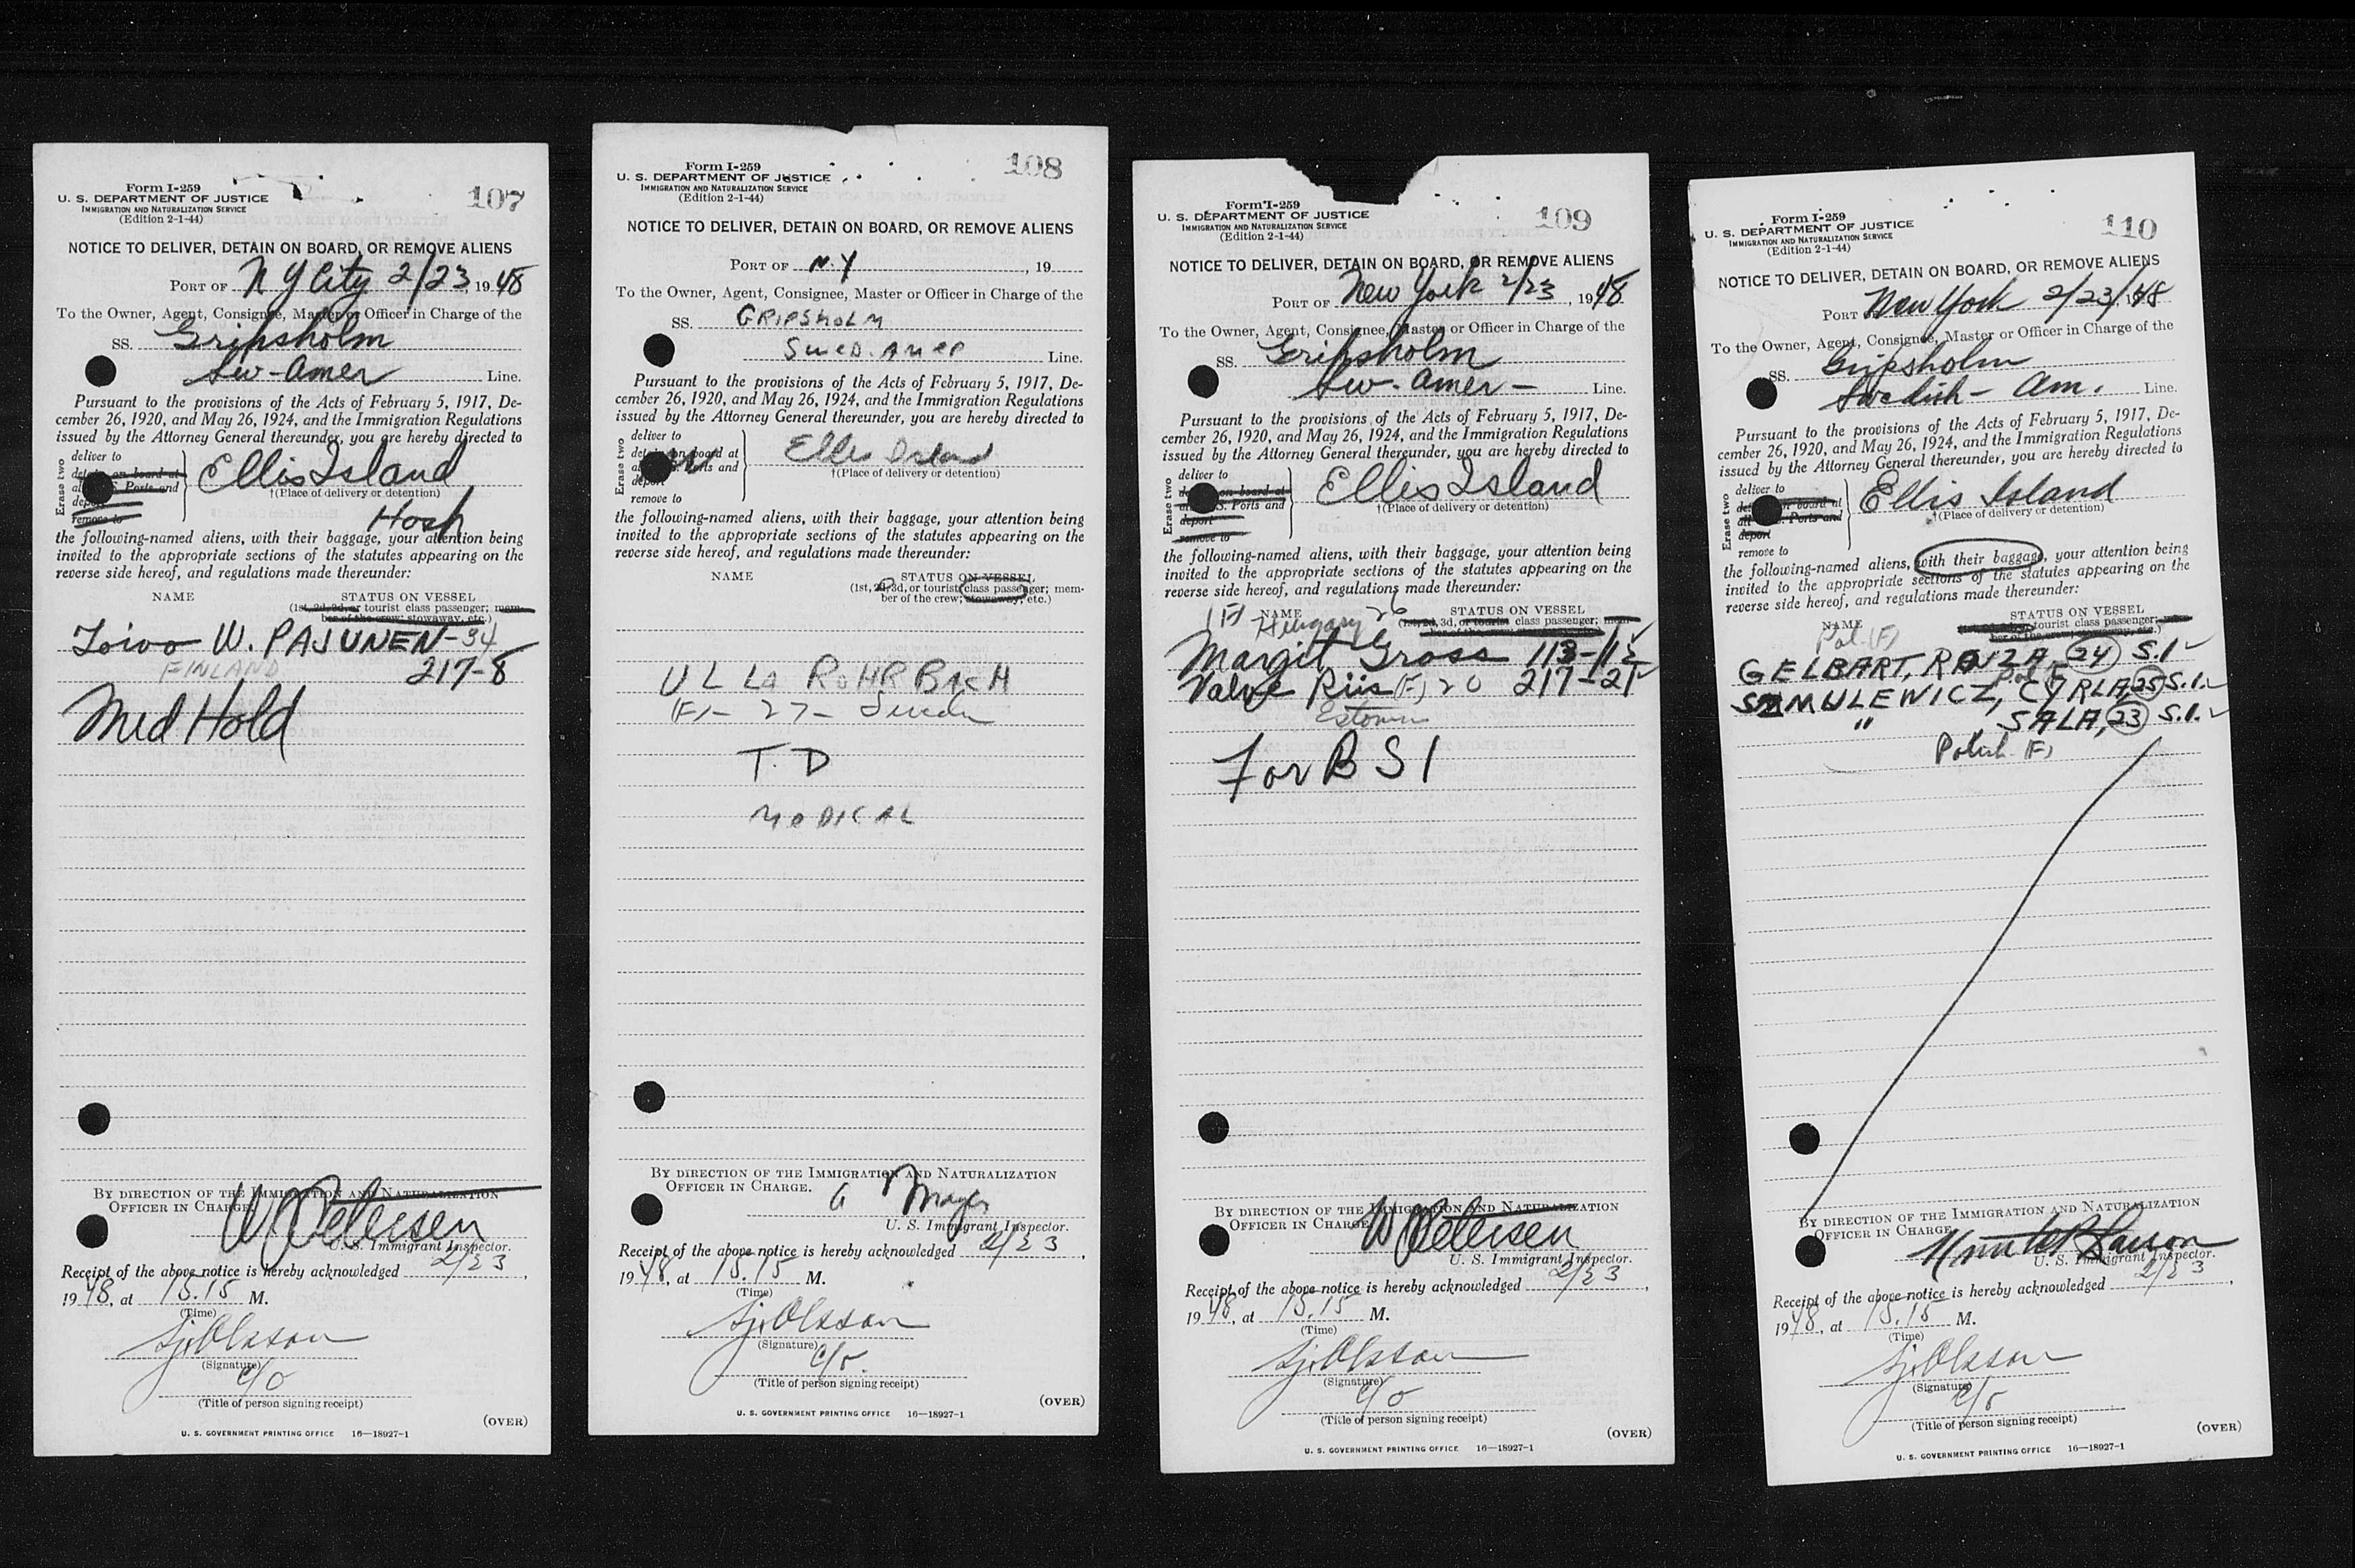 Form I-259
107
U. S. DEPARTMENT OF JUSTICE
IMMIGRATION AND NATURALIZATION SERVICE
(Edition 2-1-44)
NOTICE TO DELIVER, DETAIN ON BOARD, OR REMOVE ALIENS
PORT OF N Y City 2/23, 1948
To the Owner, Agent, Consignee, Master or Officer in Charge of the
SS. Gripsholm
Sw-Amer Line.
Pursuant to the provisions of the Acts of February 5, 1917, De-
cember 26, 1920, and May 26, 1924, and the Immigration Regulations
issued by the Attorney General thereunder, you are hereby directed to
Erase two
deliver to
detain on board at
all U. S. Ports and
deport
remove to
Ellis Island
†(Place of delivery or detention)
Hosp
the following-named aliens, with their baggage, your attention being
invited to the appropriate sections of the statutes appearing on the
reverse side hereof, and regulations made thereunder:
NAME STATUS ON VESSEL
(1st, 2d, 3d, or tourist class passenger; mem-
ber of the crew; stowaway, etc.)
Toivo W. PAJUNEN-34
FINLAND 217-8
Med Hold
BY DIRECTION OF THE IMMIGRATION AND NATURALIZATION
OFFICER IN CHARGE.
W Petersen
U. S. Immigrant Inspector.
Receipt of the above notice is hereby acknowledged 2/23,
1948, at 15.15 M.
(Time)
Sj. Olsson
(Signature)
c/o
(Title of person signing receipt)
(OVER)
U. S. GOVERNMENT PRINTING OFFICE 16—18927-1
Form I-259
108
U. S. DEPARTMENT OF JUSTICE
IMMIGRATION AND NATURALIZATION SERVICE
(Edition 2-1-44)
NOTICE TO DELIVER, DETAIN ON BOARD, OR REMOVE ALIENS
PORT OF N.Y, 19
To the Owner, Agent, Consignee, Master or Officer in Charge of the
SS. GRIPSHOLM
SWED. AMER Line.
Pursuant to the provisions of the Acts of February 5, 1917, De-
cember 26, 1920, and May 26, 1924, and the Immigration Regulations
issued by the Attorney General thereunder, you are hereby directed to
Erase two
deliver to
detain on board at
all U. S. Ports and
deport
remove to
Ellis Island
†(Place of delivery or detention)
the following-named aliens, with their baggage, your attention being
invited to the appropriate sections of the statutes appearing on the
reverse side hereof, and regulations made thereunder:
NAME STATUS ON VESSEL
(1st, 2d, 3d, or tourist class passenger; mem-
ber of the crew; stowaway, etc.)
ULLA ROHRBACH
(F)- 27- Sweden
T. D
MEDICAL
BY DIRECTION OF THE IMMIGRATION AND NATURALIZATION
OFFICER IN CHARGE.
A Mayer
U. S. Immigrant Inspector.
Receipt of the above notice is hereby acknowledged 2/23,
1948, at 15.15 M.
(Time)
Sj. Olsson
(Signature)
c/o.
(Title of person signing receipt)
(OVER)
U. S. GOVERNMENT PRINTING OFFICE 16—18927-1
Form I-259
109
U. S. DEPARTMENT OF JUSTICE
IMMIGRATION AND NATURALIZATION SERVICE
(Edition 2-1-44)
NOTICE TO DELIVER, DETAIN ON BOARD, OR REMOVE ALIENS
PORT OF New York 2/23, 1948
To the Owner, Agent, Consignee, Master or Officer in Charge of the
SS. Gripsholm
Sw-Amer- Line.
Pursuant to the provisions of the Acts of February 5, 1917, De-
cember 26, 1920, and May 26, 1924, and the Immigration Regulations
issued by the Attorney General thereunder, you are hereby directed to
Erase two
deliver to
detain on board at
all U. S. Ports and
deport
remove to
Ellis Island
†(Place of delivery or detention)
the following-named aliens, with their baggage, your attention being
invited to the appropriate sections of the statutes appearing on the
reverse side hereof, and regulations made thereunder:
NAME STATUS ON VESSEL
(1st, 2d, 3d, or tourist class passenger; mem-
ber of the crew; stowaway, etc.)
(F) Hungary 26
Margit Gross 113-12
Valve Riis (F) 20 217-21
Estonia
For B S I
BY DIRECTION OF THE IMMIGRATION AND NATURALIZATION
OFFICER IN CHARGE.
W Petersen
U. S. Immigrant Inspector.
Receipt of the above notice is hereby acknowledged 2/23,
1948, at 15.15 M.
(Time)
Sj. Olsson
(Signature)
c/o
(Title of person signing receipt)
(OVER)
U. S. GOVERNMENT PRINTING OFFICE 16—18927-1
Form I-259
110
U. S. DEPARTMENT OF JUSTICE
IMMIGRATION AND NATURALIZATION SERVICE
(Edition 2-1-44)
NOTICE TO DELIVER, DETAIN ON BOARD, OR REMOVE ALIENS
PORT OF New York 2/23, 1948
To the Owner, Agent, Consignee, Master or Officer in Charge of the
SS. Gripsholm
Swedish-Am. Line.
Pursuant to the provisions of the Acts of February 5, 1917, De-
cember 26, 1920, and May 26, 1924, and the Immigration Regulations
issued by the Attorney General thereunder, you are hereby directed to
Erase two
deliver to
detain on board at
all U. S. Ports and
deport
remove to
Ellis Island
†(Place of delivery or detention)
the following-named aliens, with their baggage, your attention being
invited to the appropriate sections of the statutes appearing on the
reverse side hereof, and regulations made thereunder:
NAME STATUS ON VESSEL
(1st, 2d, 3d, or tourist class passenger; mem-
ber of the crew; stowaway, etc.)
Pol. (F)
GELBART, ROJZA (24) S.I.
SZMULEWICZ, CYRLA, (25) S.I.
" SALA, (23) S.I.
Polish (F)
BY DIRECTION OF THE IMMIGRATION AND NATURALIZATION
OFFICER IN CHARGE.
U. S. Immigrant Inspector.
Receipt of the above notice is hereby acknowledged 2/23,
1948, at 15.15 M.
(Time)
Sj. Olsson
(Signature)
c/o
(Title of person signing receipt)
(OVER)
U. S. GOVERNMENT PRINTING OFFICE 16—18927-1